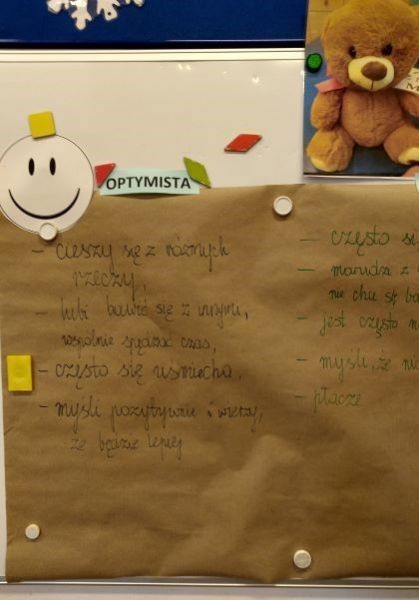 OPTYMISTA
- cieszy się z różnych
rzeczy,
- lubi bawić się z innymi,
wspólnie spędzać czas,
- często się uśmiecha,
- myśli pozytywnie i wierzy,
że będzie lepiej
- często si
- marudzi z
nie chce się ba
- jest często n
- myśli, że ni
- płacze